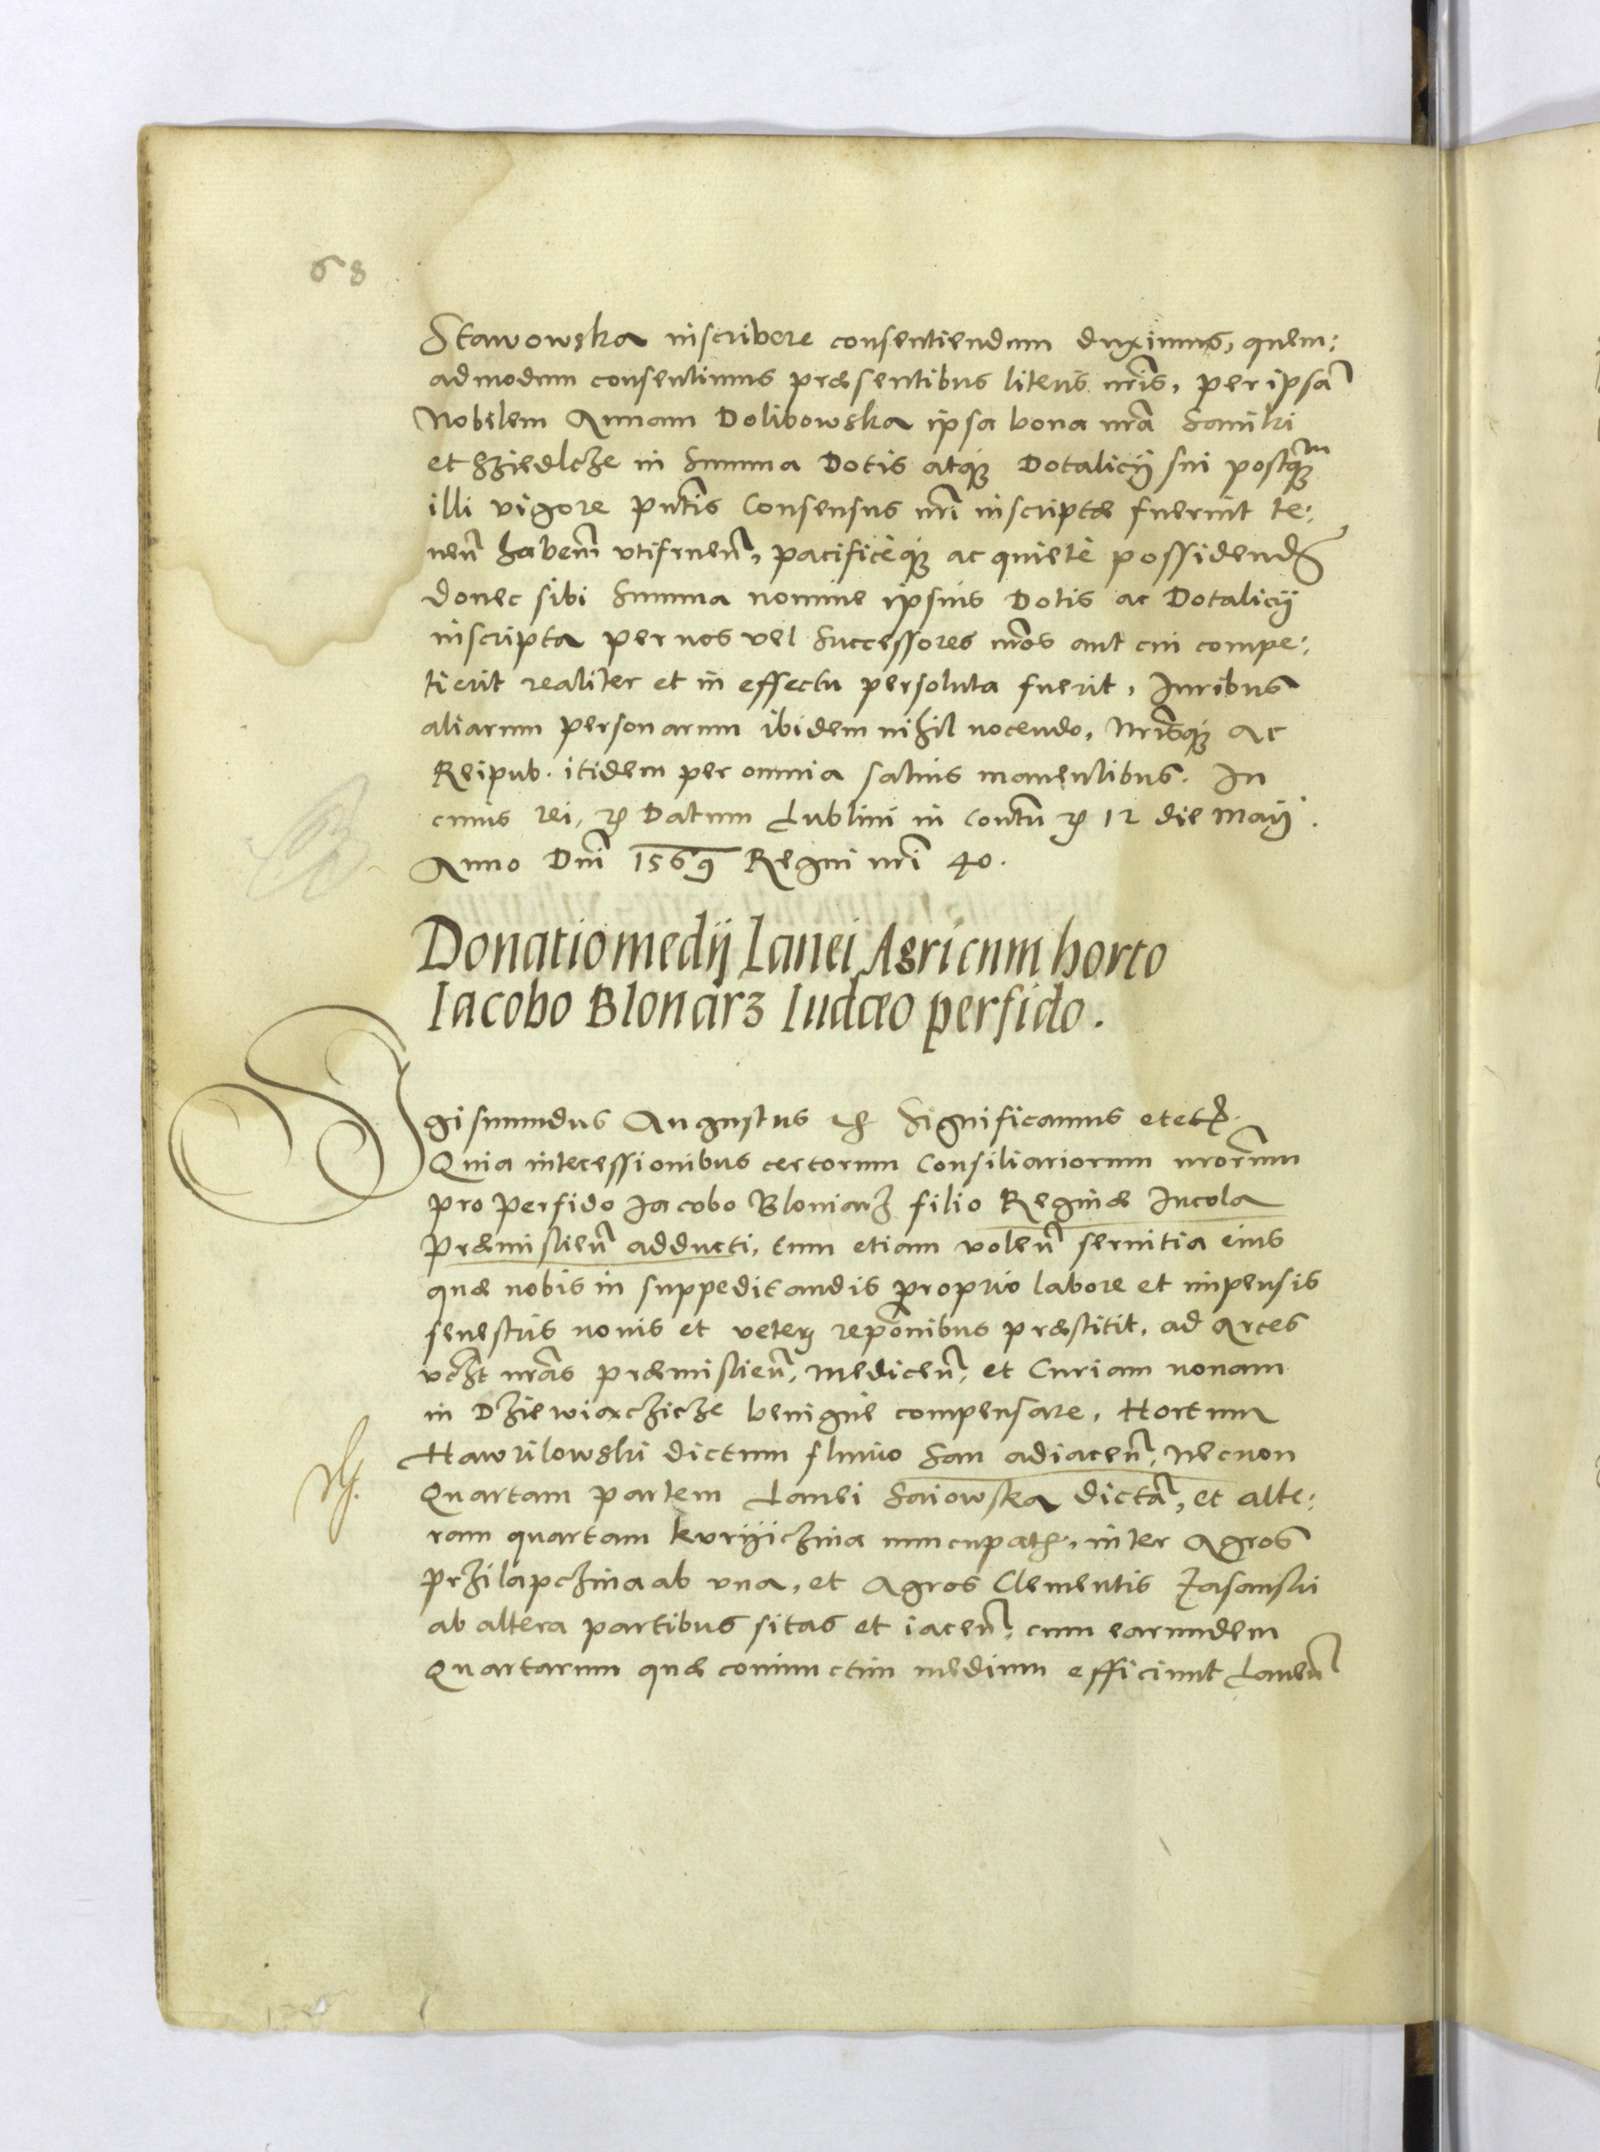 68
Stawowska inscribere consentiendum duximus, quem:
admodum consentimus præsentibus literis nr̃is, per ipsã
Nobilem Annam Dolibowska ipsa bona nr̃a Saniki
et Szÿedlcze in Summa Dotis atq3 Dotalicij sui postq̃3m
illi vigore pñtis Consensus nr̃i inscriptæ fuerint te:
neñ habeñ utifrueñ, pacificèq3 ac quietè possidend̃
donec sibi Summa nomine ipsius Dotis ac Dotalicij
inscripta per nos vel Successores nr̃os aut cui compe:
tierit realiter et in effectu persoluta fuerit, Iuribus
aliarum personarum ibidem nihil nocendo, Nr̃isq3 Ac
Reipub. itidem per omnia saluis manentibus. In
cuius rei, ꝛc Datum Lublini in Contũ ꝛc 12 die Maij.
Anno Dñi 1569 Regni nr̃i 40.
Donatio medij Lanei Agri cum horto
Iacobo Blonarz Iudæo perfido.
Sigismundus Augustus ꝛc Significamus etetc.
Quia intecessionibus certorum Consiliariorum nrorũm
pro perfido Jacobo Bloniarz filio Reginæ Incola
Præmislieñ adducti, tum etiam voleñ seruitia eius
quæ nobis in suppeditandis proprio labore et impensis
fenestris nouis et veterꝫ repõnibus præstitit, ad Arces
vc̃zt nr̃as præmislieñ, Mediceñ, et Curiam nouam
in Dziewiaczicze benignè compensare, Hortum
Hawrilowski dictum fluuio San adiaceñ, Necnon
Quartam partem Lanei Saiowska dictã, et alte:
ram quartam kvrÿiczina nuncupatã, inter Agros
przilapczina ab una, et Agros Clementis Zasanski
ab altera partibus sitas et iaceñ, cum earundem
Quartarum quæ coniunctim medium efficiunt Laneũ